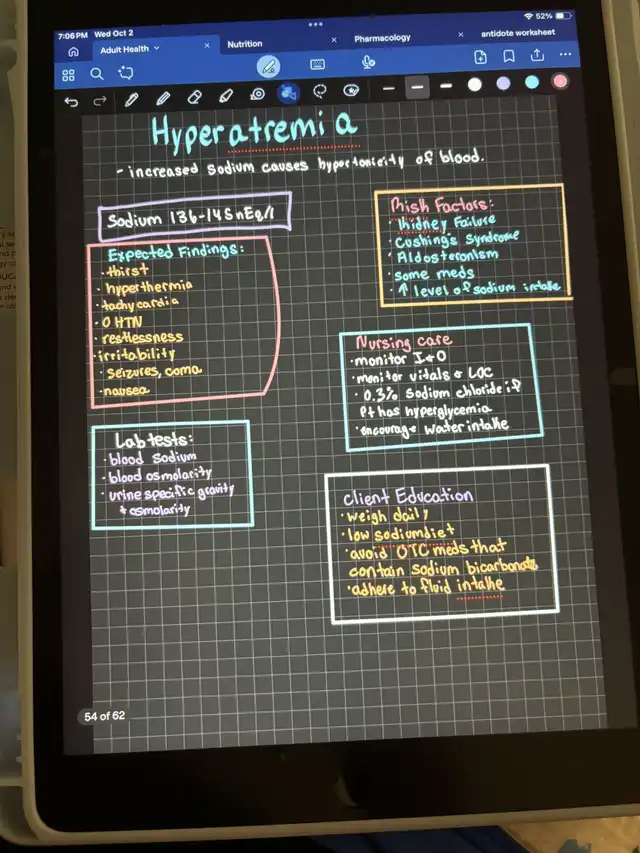 7:06 PM Wed Oct 2
52%
Adult Health
Nutrition
Pharmacology
antidote worksheet
Hyperatremia
- increased sodium causes hypertonicity of blood.
Sodium 136-145 mEq/l
Expected Findings:
· thirst
· hyperthermia
· tachycardia
· O HTN
· restlessness
· irritability
· seizures, coma
· nausea
Lab tests:
· blood sodium
· blood osmolarity
· urine specific gravity
+ osmolarity
Risk Factors:
· Kidney Failure
· Cushing's Syndrome
· Aldosteronism
· some meds
· ↑ level of sodium intake
Nursing care
· monitor I+O
· monitor vitals + LOC
· 0.3% sodium chloride if
Pt has hyperglycemia
· encourage water intake
Client Education
· weigh daily
· low sodium diet
· avoid OTC meds that
contain sodium bicarbonate
· adhere to fluid intake
54 of 62